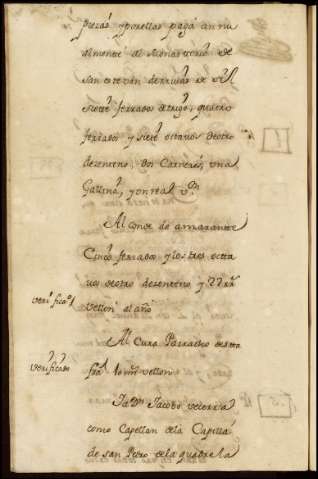 piezas, y por ellas paga an nu
almente al Monasterio de
san estevan de rivas de Sil
siette ferrados de trigo, quatro
ferrados y siete octavos de otro
de zenteno, dos Carneros, una
Gallina, y on real vn.
Al conde de amarante
Cinco ferrados y los tres octa
vos de otro de zenteno y 22 rrs
vellon al año
verificado
Al Cura Parracho de esta
verificado
fra. 10 mrs vellon
Ya Dn Jacobo vecerria
como Capellan de la Capilla
de san Pedro de la quadrela